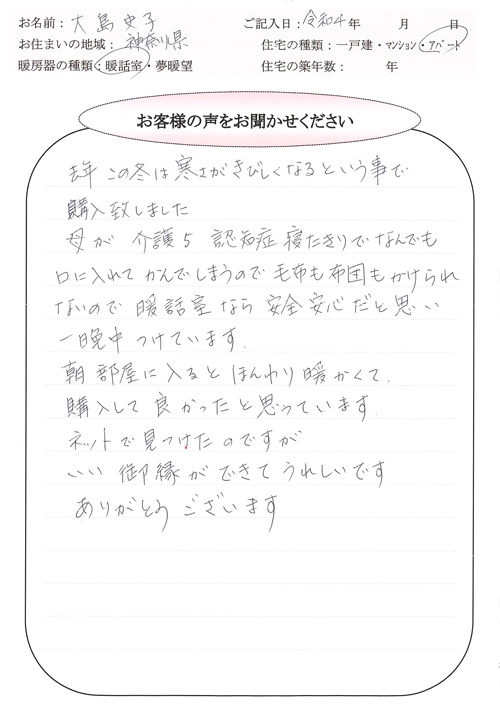 お名前：大島史子
ご記入日：令和4年　月　日
お住まいの地域：神奈川県
住宅の種類：一戸建・マンション・アパート
暖房器の種類：暖話室・夢暖望
住宅の築年数：　年
お客様の声をお聞かせください
去年 この冬は寒さがきびしくなるという事で
購入致しました
母が 介護5 認知症 寝たきりでなんでも
口に入れて かんでしまうので 毛布も布団もかけられ
ないので 暖話室なら 安全安心だと思い
一晩中 つけています.
朝 部屋に入ると ほんわり暖かくて.
購入して 良かったと思っています.
ネットで見つけたのですが
いい 御縁ができて うれしいです
ありがとう ございます